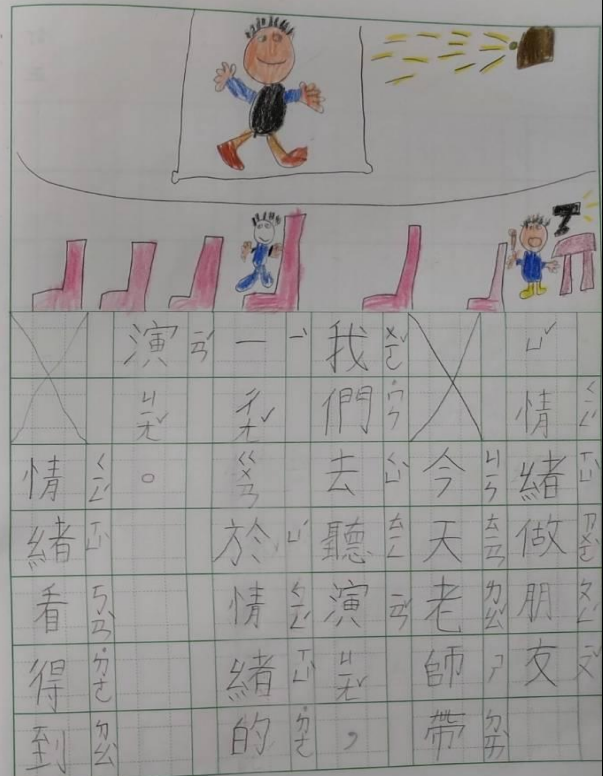 ㄩˇ情緒做朋友
今天老師帶
我們去聽演ㄐㄧㄤˇ，
一ㄔㄤˇㄍㄨㄢ於情緒的
演ㄐㄧㄤˇ。
情緒看得到